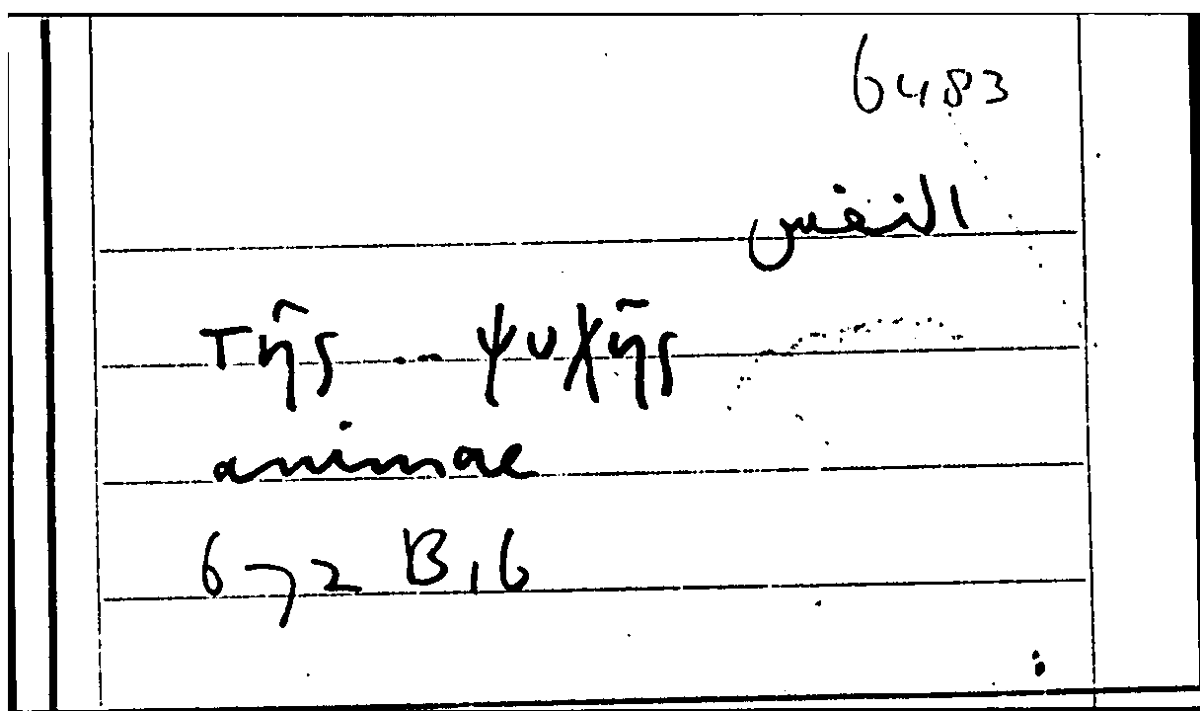 6483
النفس
τῆς ... ψυχῆς
animae
672 B,6